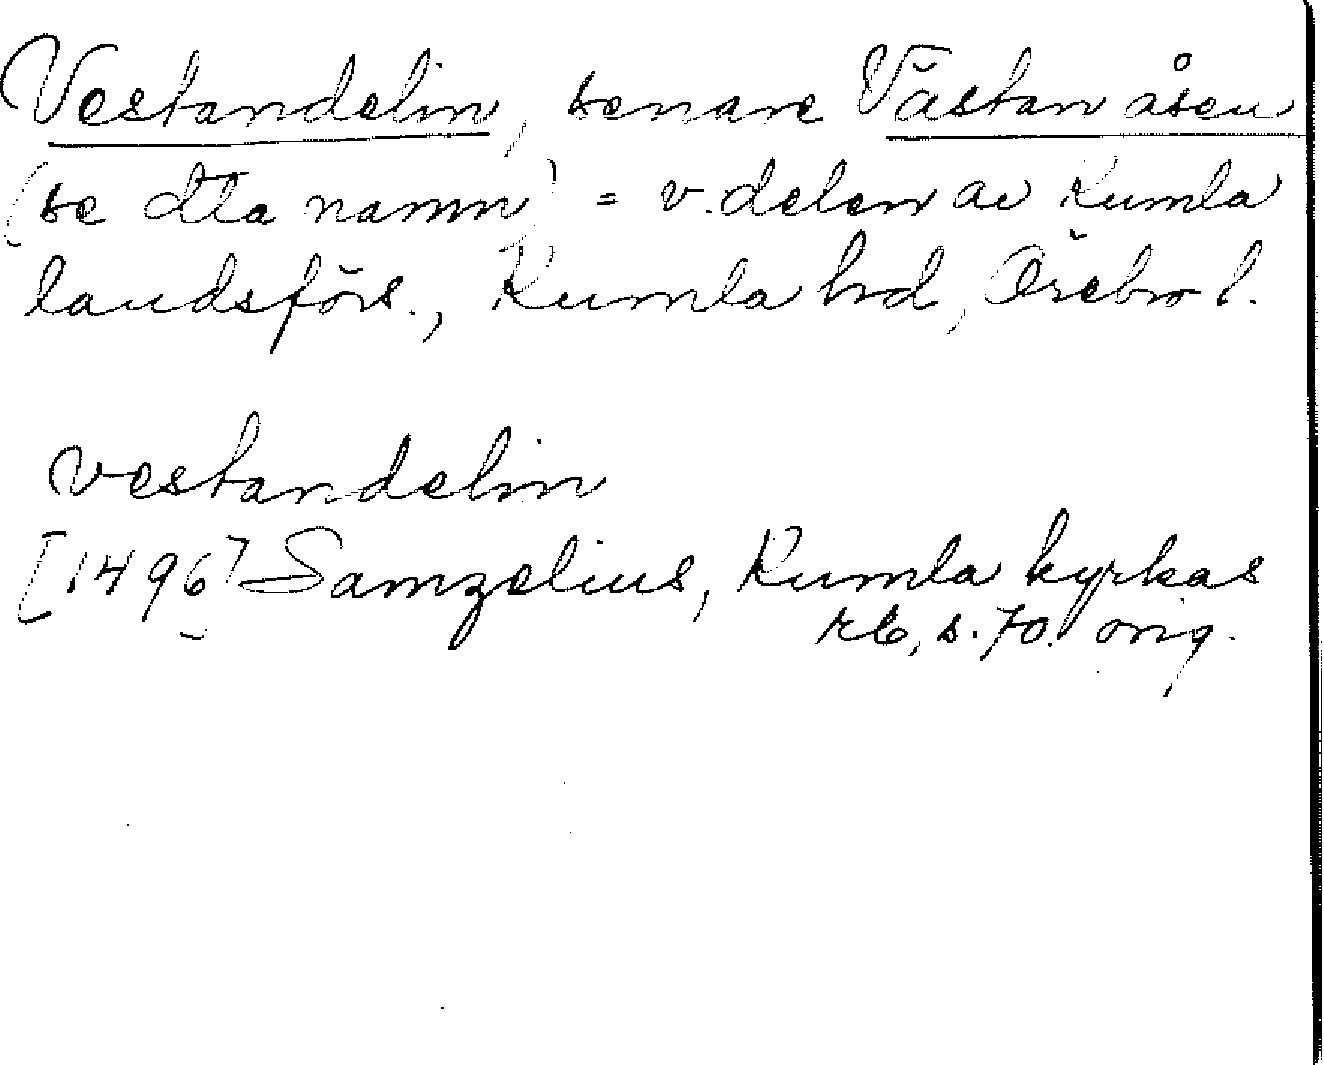 Vestandelin, senare Västanåsen
(se dtta namn) = v. delen av Kumla
landsförs., Kumla hd, Örebro l.
vestandelin
[1496] Samzelius, Kumla kyrkas
rb, s. 70. orig.